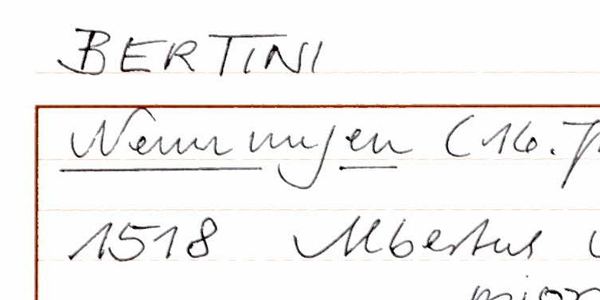 BERTINI
Nennungen (16. J
1518 Albertus